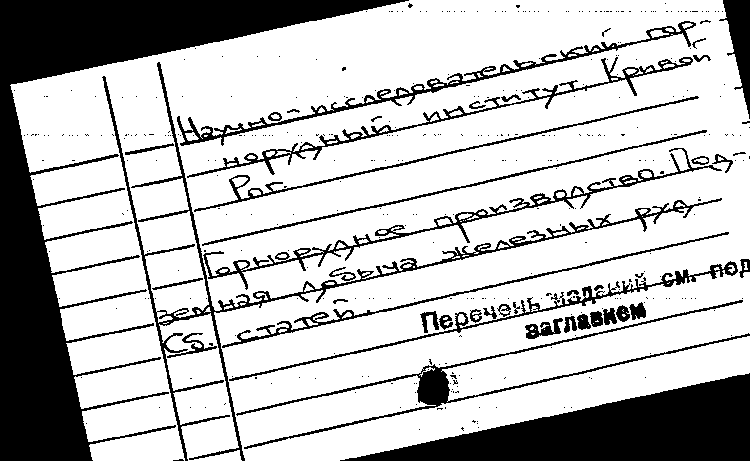 Научно-исследовательский гор-
норудный институт, Кривой
Рог.
Горнорудное производство. Под-
земная добыча железных руд.
Сб. статей.
Перечень изданий см. под
заглавием